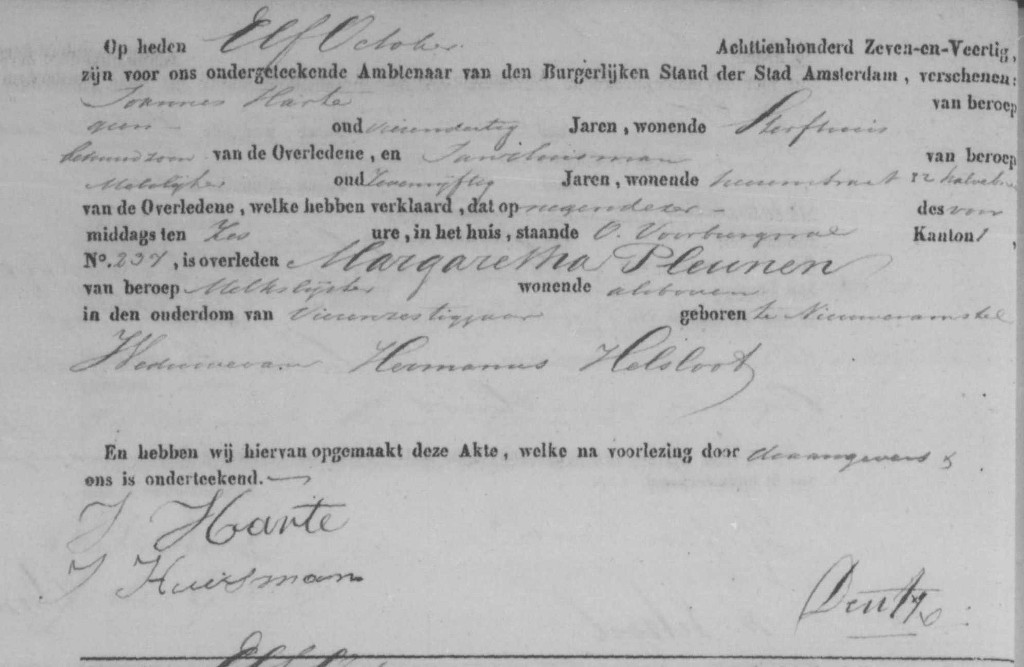 Op heden Elf October Achttienhonderd Zeven-en-Veertig,
zijn voor ons ondergeteekende Ambtenaar van den Burgerlijken Stand der Stad Amsterdam, verschenen:
Joannes Harte van beroep
geen oud vierendertig Jaren, wonende Sterfhuis
behuwdzoon van de Overledene, en Jan Huisman van beroep
oud Jaren, wonende 12
van de Overledene, welke hebben verklaard, dat op negen dezer des voor
middags ten Zes ure, in het huis, staande O. Voorburgwal Kanton 1,
No. 237, is overleden Margaretha Pleunen
van beroep Melkslijtster wonende alsboven
in den ouderdom van Vierenzestig jaar geboren te Nieuweramstel
Weduwe van Hermanus Helsloot
En hebben wij hiervan opgemaakt deze Akte, welke na voorlezing door de aangevers &
ons is onderteekend.
J Harte
J Huisman